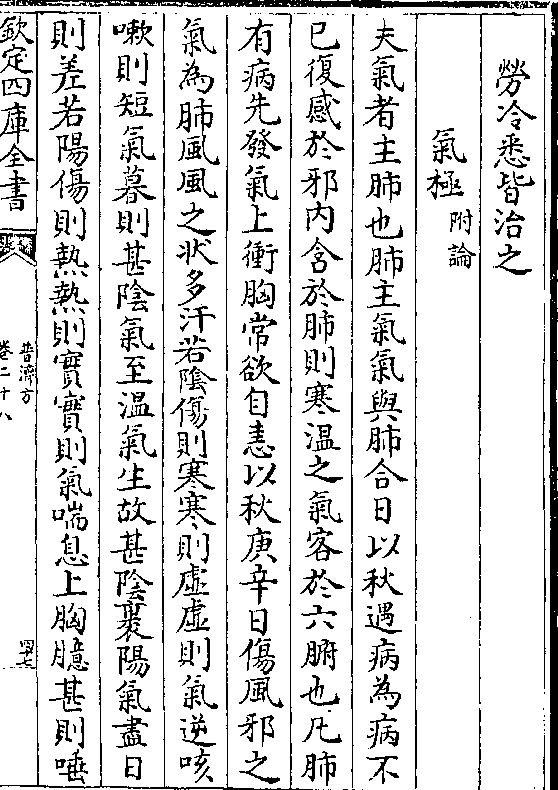 勞冷悉皆治之
氣極附論
夫氣者主肺也肺主氣氣與肺合日以秋遇病為病不
已復感於邪內含於肺則寒溫之氣客於六腑也凡肺
有病先發氣上衝胸常欲自恚以秋庚辛日傷風邪之
氣為肺風風之狀多汗若陰傷則寒寒則虛虛則氣逆咳
嗽則短氣暮則甚陰氣至溫氣生故甚陰裹陽氣盡日
則差若陽傷則熱熱則實實則氣喘息上胸臆甚則唾
欽定四庫全書
普濟方
卷二十八
四十七